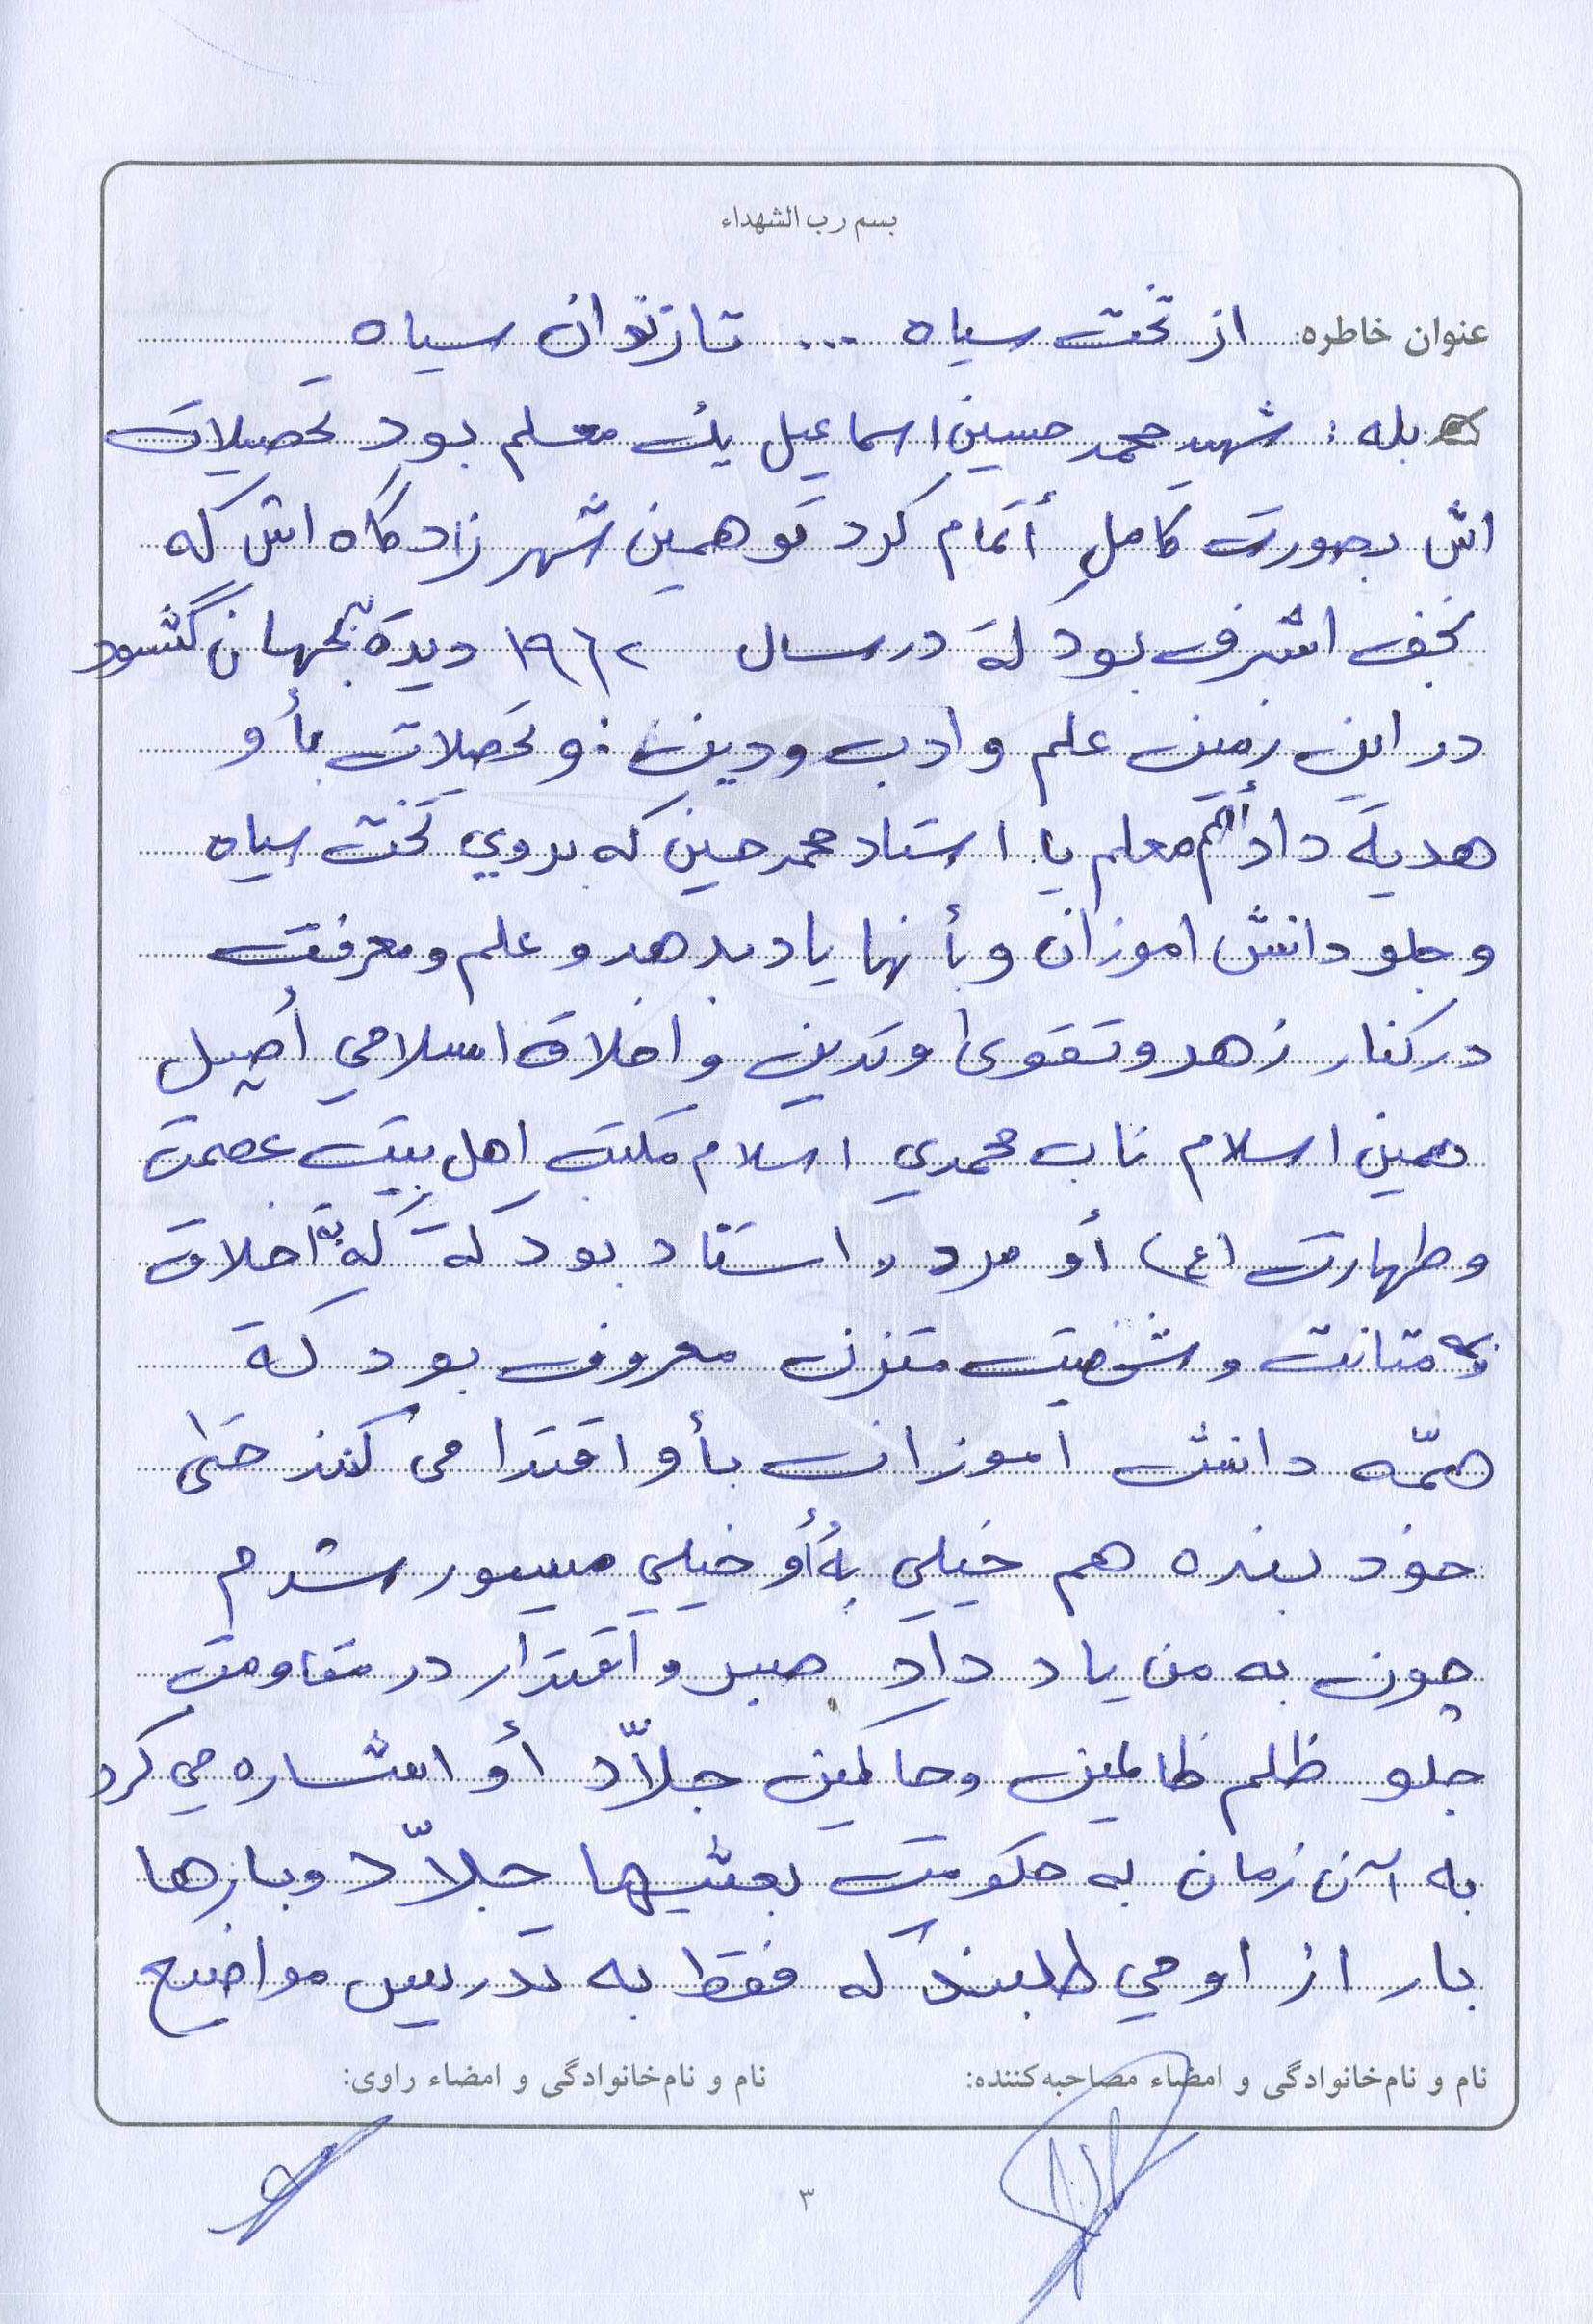 بسم رب الشهداء
عنوان خاطره: از تخت سیاه ... تا زندان سیاه
بله : شهید محمد حسین اسماعیل یک معلم بود تحصیلات
اش بصورت کامل أتمام کرد تو همین شهر زادگاه اش که
نجف اشرف بود کة در سال ۱۹٦۲ دیدة بجهان گشود
در این زمین علم و ادب و دین و تحصیلات بأو
هدیة داد معلم یا استاد محمد حسین که بروي تخت سیاه
و جلو دانش اموزان و بأنها یاد بدهد و علم و معرفت
در کنار زهد و تقوی و تدین و اخلاق اسلامي أصیل
همین اسلام ناب محمدي اسلام مکتب اهل بیت عصمت
و طهارت (ع) أو مرد و استاد بود کة که به اخلاق
متانت و شخصیت متزن معروف بود کة
همّه دانش اموزان بأو اقتدا می کنند حتی
خود بنده هم خیلي به أو خیلي میسور شدم
چون به من یاد داد صبر و اقتدار در مقاومت
جلو ظلم ظالمین و حاکمین جلاّد أو اشاره مي کرد
به آن زمان به حکومت بعثیها جلاّد و بارها
بار از او مي طلبند که فقط به تدریس مواضیع
نام و نام‌خانوادگی و امضاء مصاحبه‌کننده: نام و نام‌خانوادگی و امضاء راوی:
۳